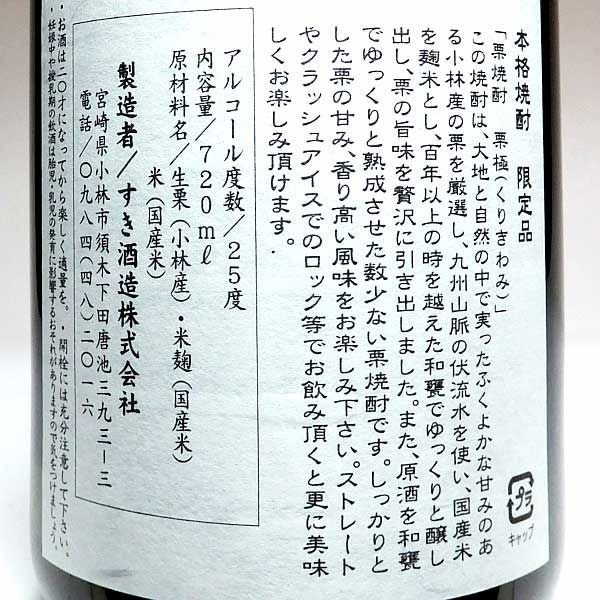 本格焼酎　限定品
「栗焼酎　栗極（くりきわみ）」
この焼酎は、大地と自然の中で実ったふくよかな甘みのあ
る小林産の栗を厳選し、九州山脈の伏流水を使い、国産米
を麹米とし、百年以上の時を越えた和甕でゆっくりと醸し
出し、栗の旨味を贅沢に引き出しました。また、原酒を和甕
でゆっくりと熟成させた数少ない栗焼酎です。しっかりと
した栗の甘み、香り高い風味をお楽しみ下さい。ストレート
やクラッシュアイスでのロック等でお飲み頂くと更に美味
しくお楽しみ頂けます。
プラ
キャップ
アルコール度数/25度
内容量/720ml
原材料名/生栗（小林産）・米麹（国産米）
米（国産米）
製造者/すき酒造株式会社
宮崎県小林市須木下田唐池三九三ー三
電話/〇九八四（四八）二〇一六
・お酒は二〇才になってから楽しく適量を。・開栓には充分注意して下さい。
・妊娠中や授乳期の飲酒は胎児・乳児の発育に影響するおそれがありますので気をつけましょう。